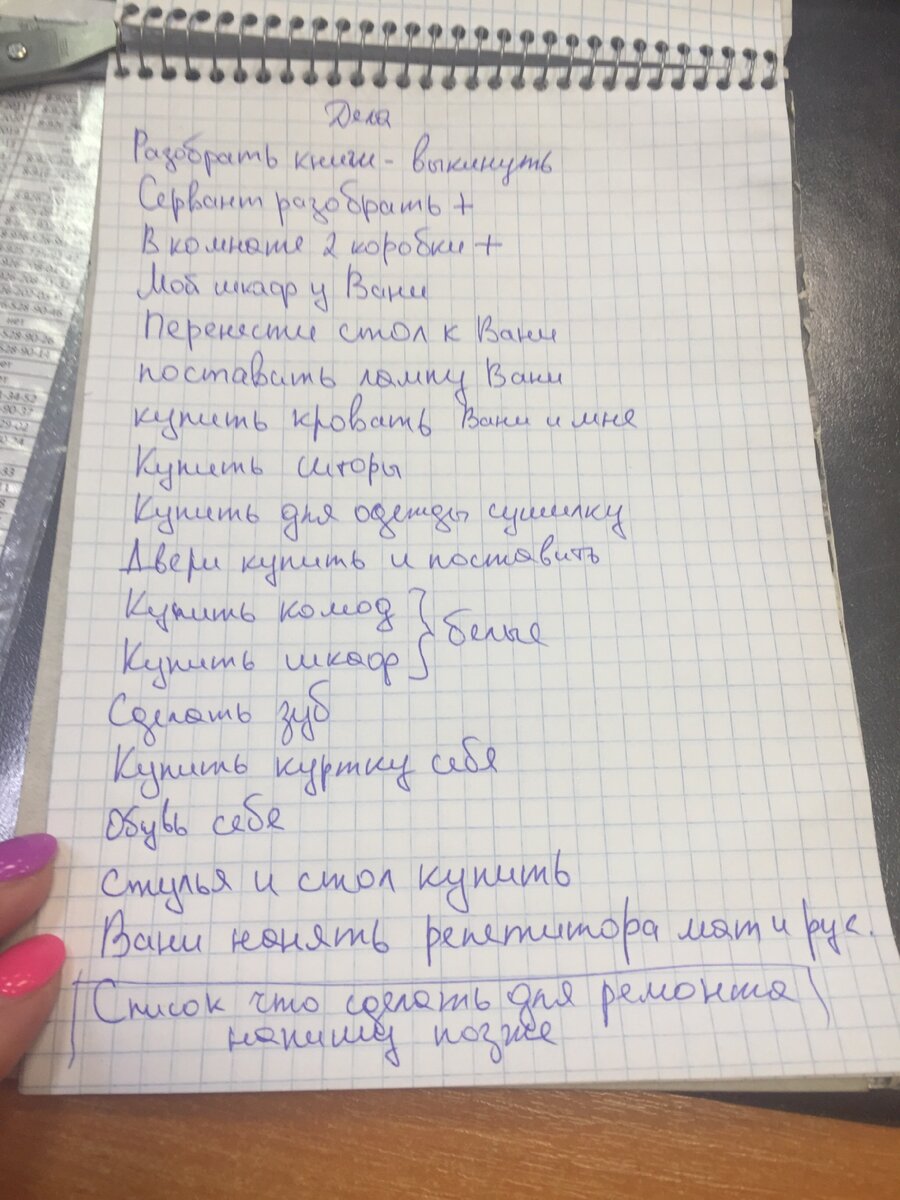 Дела
Разобрать книги - выкинуть
Сервант разобрать +
В комнате 2 коробки +
Мой шкаф у Вани
Перенести стол к Вани
поставить лампу Вани
купить кровать Вани и мне
Купить шторы
Купить для одежды сушилку
Двери купить и поставить
Купить комод } белые
Купить шкаф
Сделать зуб
Купить куртку себе
Обувь себе
Стулья и стол купить
Вани нанять репетитора мат и рус.
Список что сделать для ремонта
напишу позже